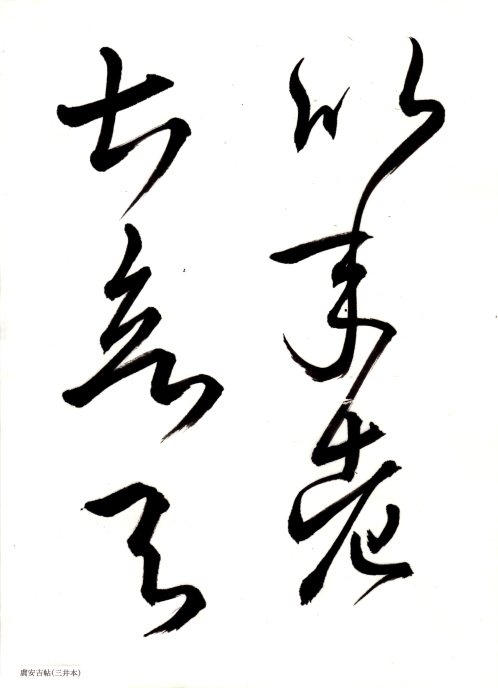 以年老
甚欲與
虞安吉帖(三井本)